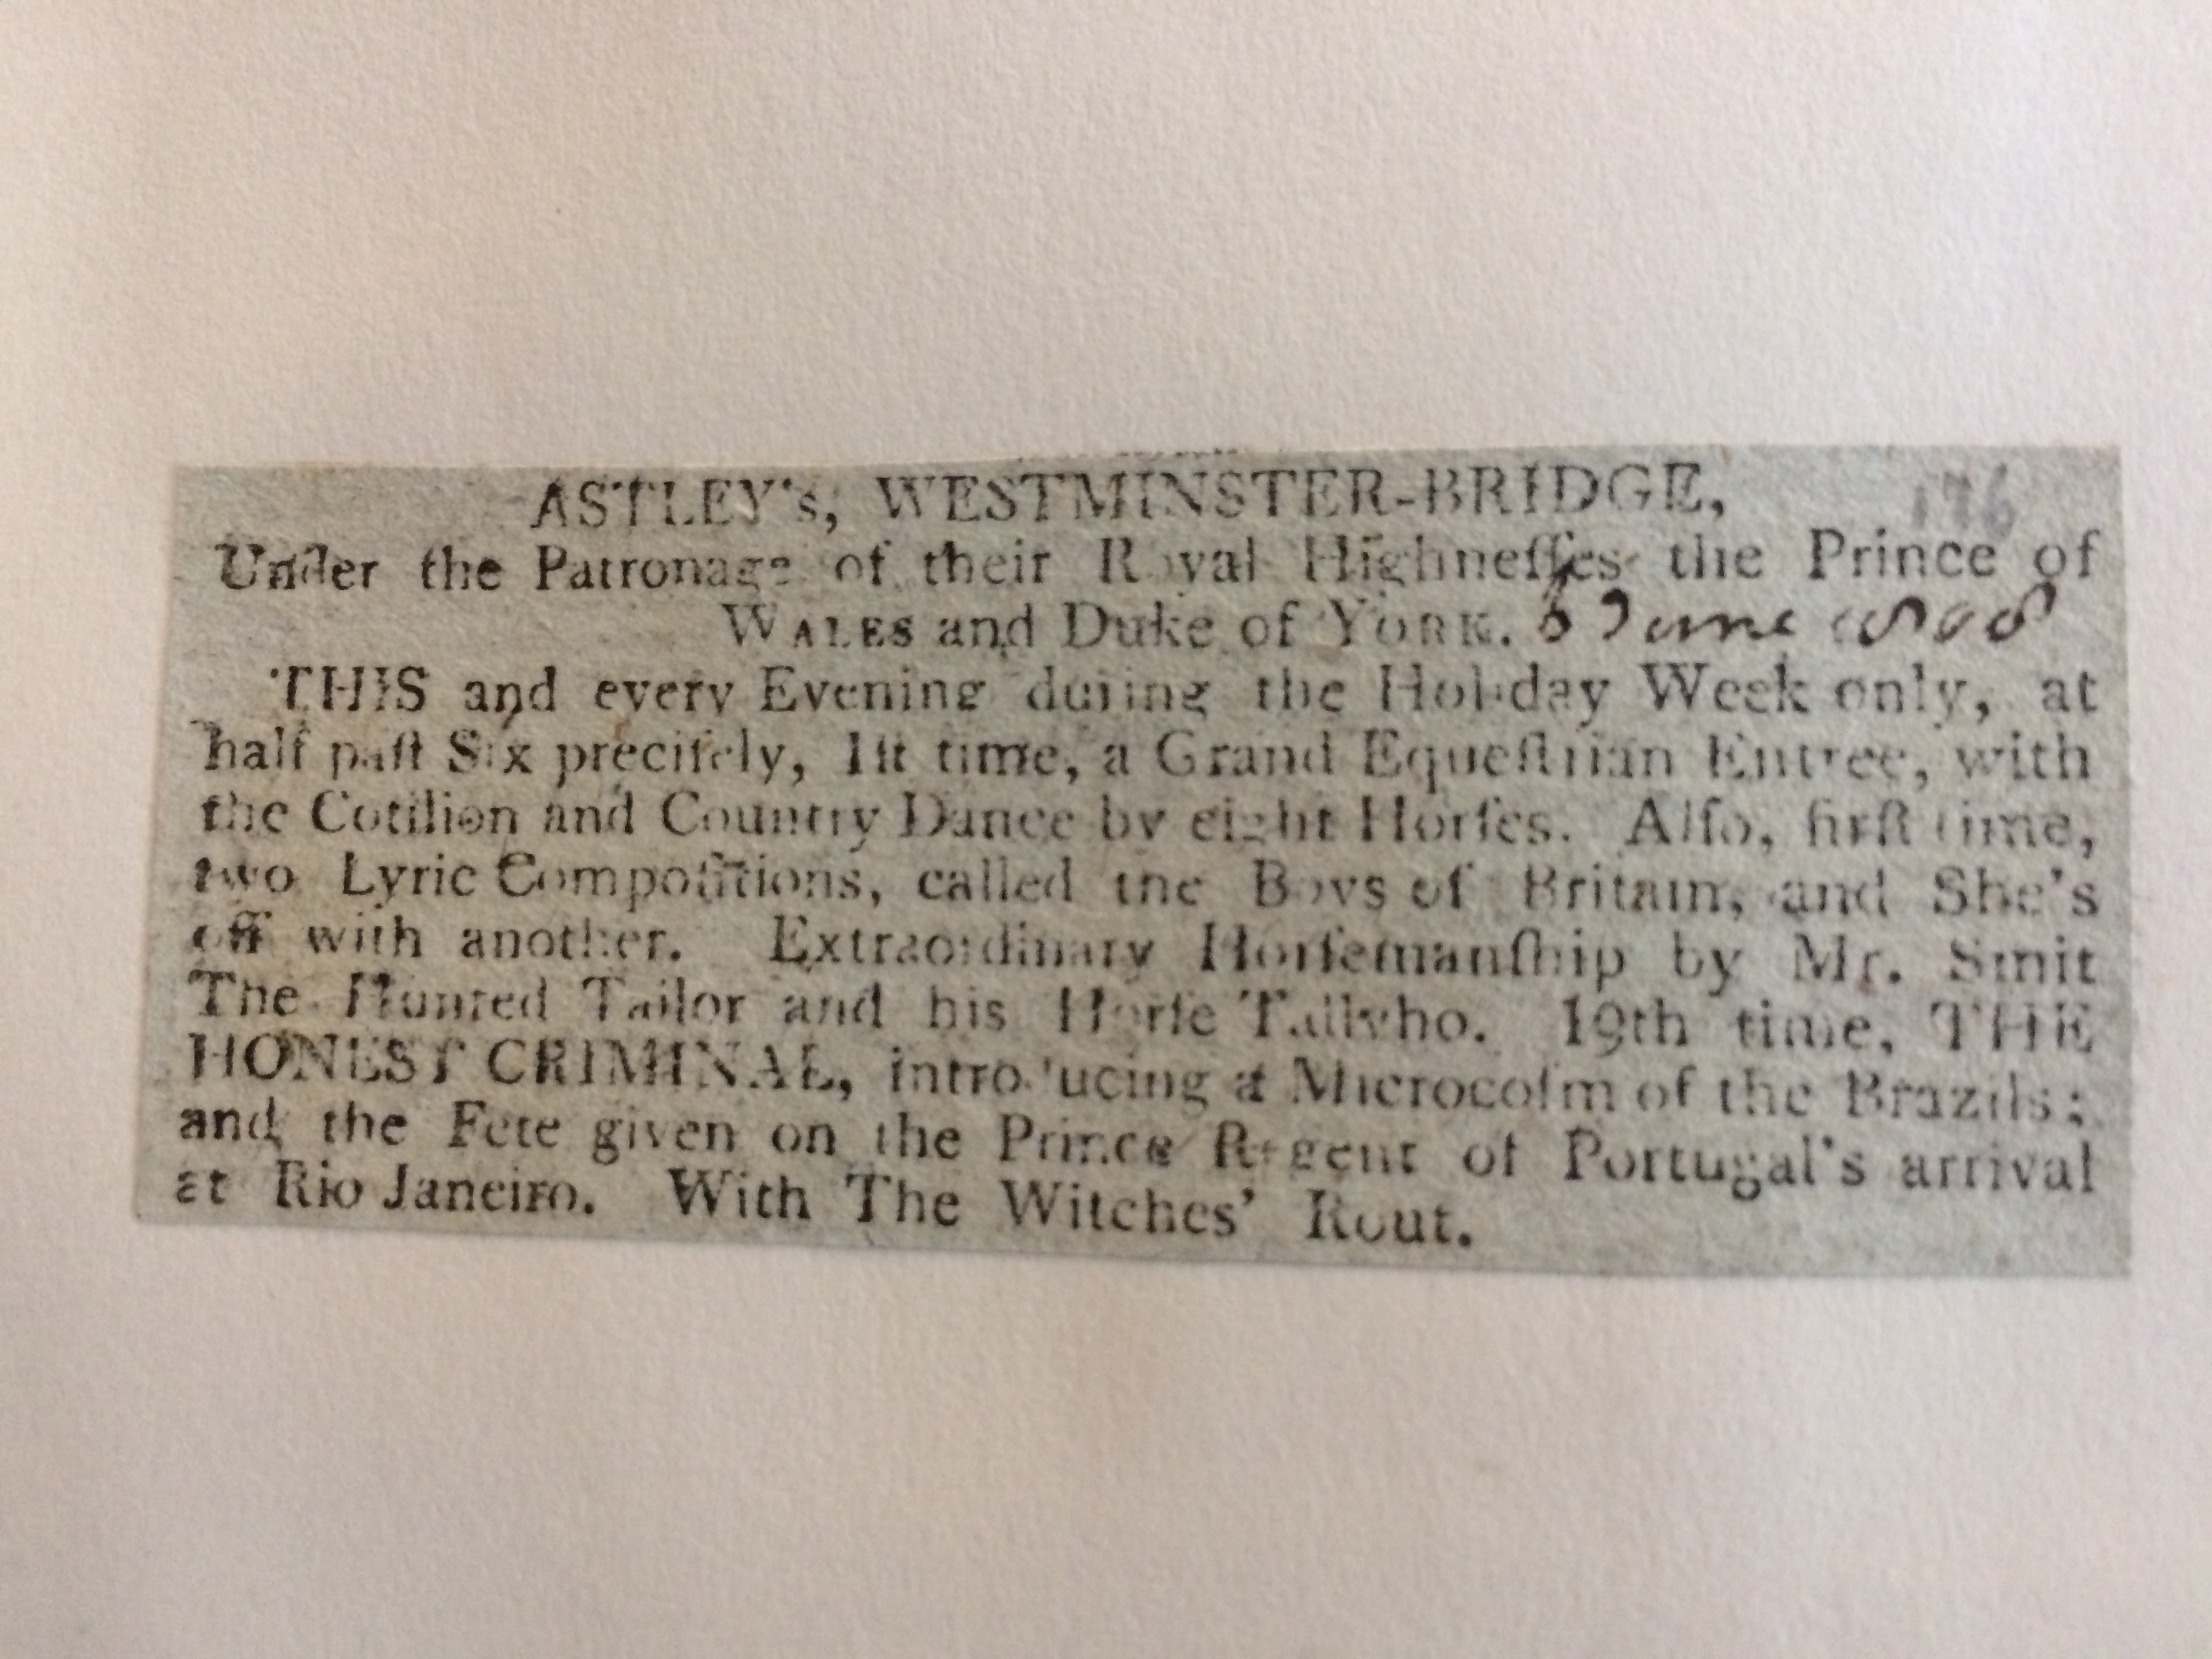 ASTLEY's, WESTMINSTER-BRIDGE,
176
Under the Patronage of their Royal Highneſſes the Prince of
WALES and Duke of YORK. 6 June 1808
THIS and every Evening during the Holiday Week only, at
half paſt Six preciſely, 1ſt time, a Grand Equeſtrian Entree, with
the Cotilion and Country Dance by eight Horſes. Alſo, firſt time,
two Lyric Compoſitions, called the Boys of Britain, and She's
off with another. Extraordinary Horſemanſhip by Mr. Smit
The Hunted Tailor and his Horſe Tallyho. 19th time, THE
HONEST CRIMINAL, introducing a Microcoſm of the Brazils;
and the Fete given on the Prince Regent of Portugal's arrival
at Rio Janeiro. With The Witches' Rout.